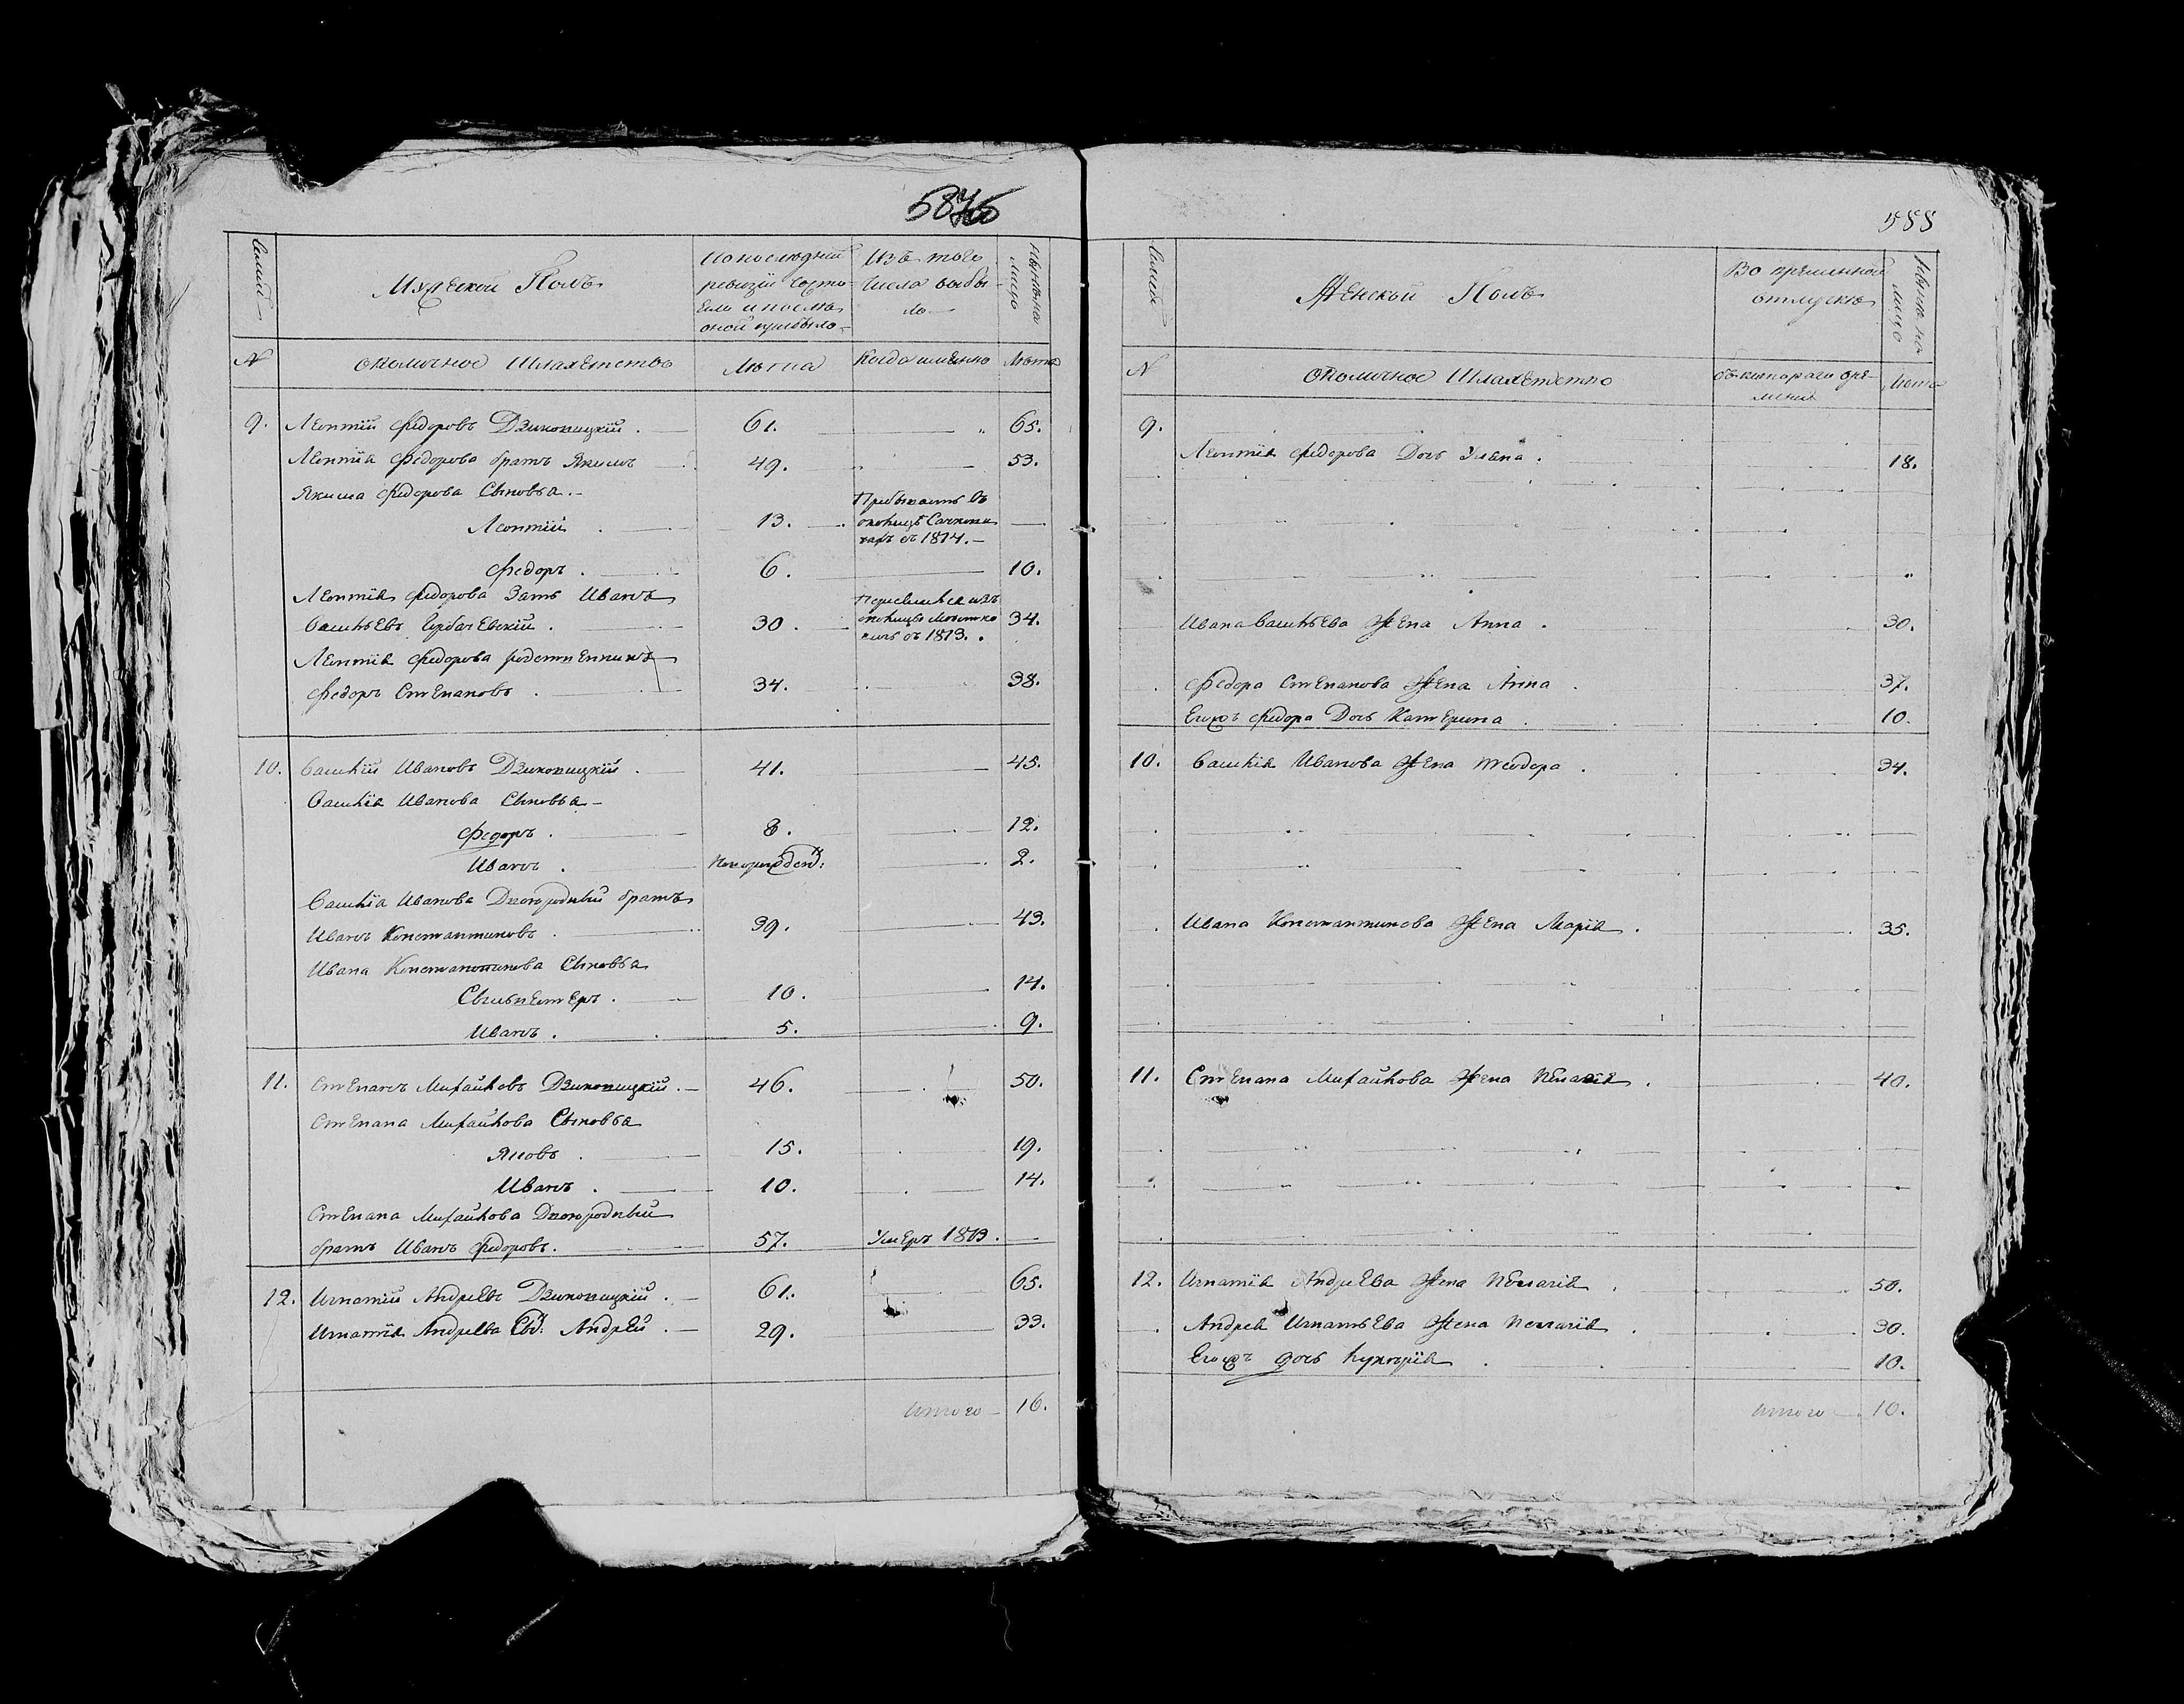 5876
Семьи
Мужескои Полъ
По последней
ревизїи состо
яло и после
оной прибыло
Изъ того
числа выбы-
ло
Нынѣ на
лицо
N
околичное Шляхетство
Лѣта
Когда имянно
Лѣта
9. Леонтїй Федоровъ Дзиковицкїй . 61. 65.
Леонтїя Федорова братъ Якимъ 49. 53.
Якима Федорова Сыновья.-
Пребываетъ въ
Леонтїй 13. околицѣ
съ 1814.-
Федоръ . 6. 10.
Леонтїя Федорова Зять Иванъ
Васильевъ Гурбачевскїй . 30. околицы 34.
съ 1813.
Леонтїя Федорова родственникъ
Федоръ Степановъ . 34. 38.
10. Василїй Ивановъ Дзиковицкїй . 41. 45.
Василїя Иванова Сыновья -
Федоръ . 8. 12.
Иванъ . новорожден: 2.
Василїя Иванова Двоюродный братъ
Иванъ Константиновъ . 39. 43.
Ивана Константинова Сыновья
Сыльвестеръ . 10. 14.
Иванъ . 5. 9.
11. Степанъ Михайловъ Дзиковицкїй .- 46. 50.
Степана Михайлова Сыновья
Яковъ . 15. 19.
Иванъ . 10. 14.
Степана Михайлова Двоюродный
братъ Иванъ Федоровъ. 57. Умеръ 1813.
12. Игнатїй Андреевъ Дзиковицкїй . 61. 65.
Игнатїя Андреева Сын: Андрей . 29. 33.
итого 16.
588
Семьи
Женскои Полъ
Во временной
отлучке
Нынѣ на
лицо
N
околичное Шляхетство
съ котораго вре-
мени
Лѣта
9.
Леонтїя Федорова Дочь Ульяна . 18.
Ивана Васильева Жена Анна . 30.
Федора Степанова Жена Анна . 37.
Егожъ Федора Дочь Катерина . 10.
10. Василїя Иванова Жена Теодора . 34.
Ивана Константинова Жена Марїя . 35.
11. Степана Михайлова Жена Пелагїя . 40.
12. Игнатїя Андреева Жена Пелагїя . 50.
Андрея Игнатьева Жена Пелагїя . 30.
Егожъ дочь Лукерїя . 10.
итого 10.